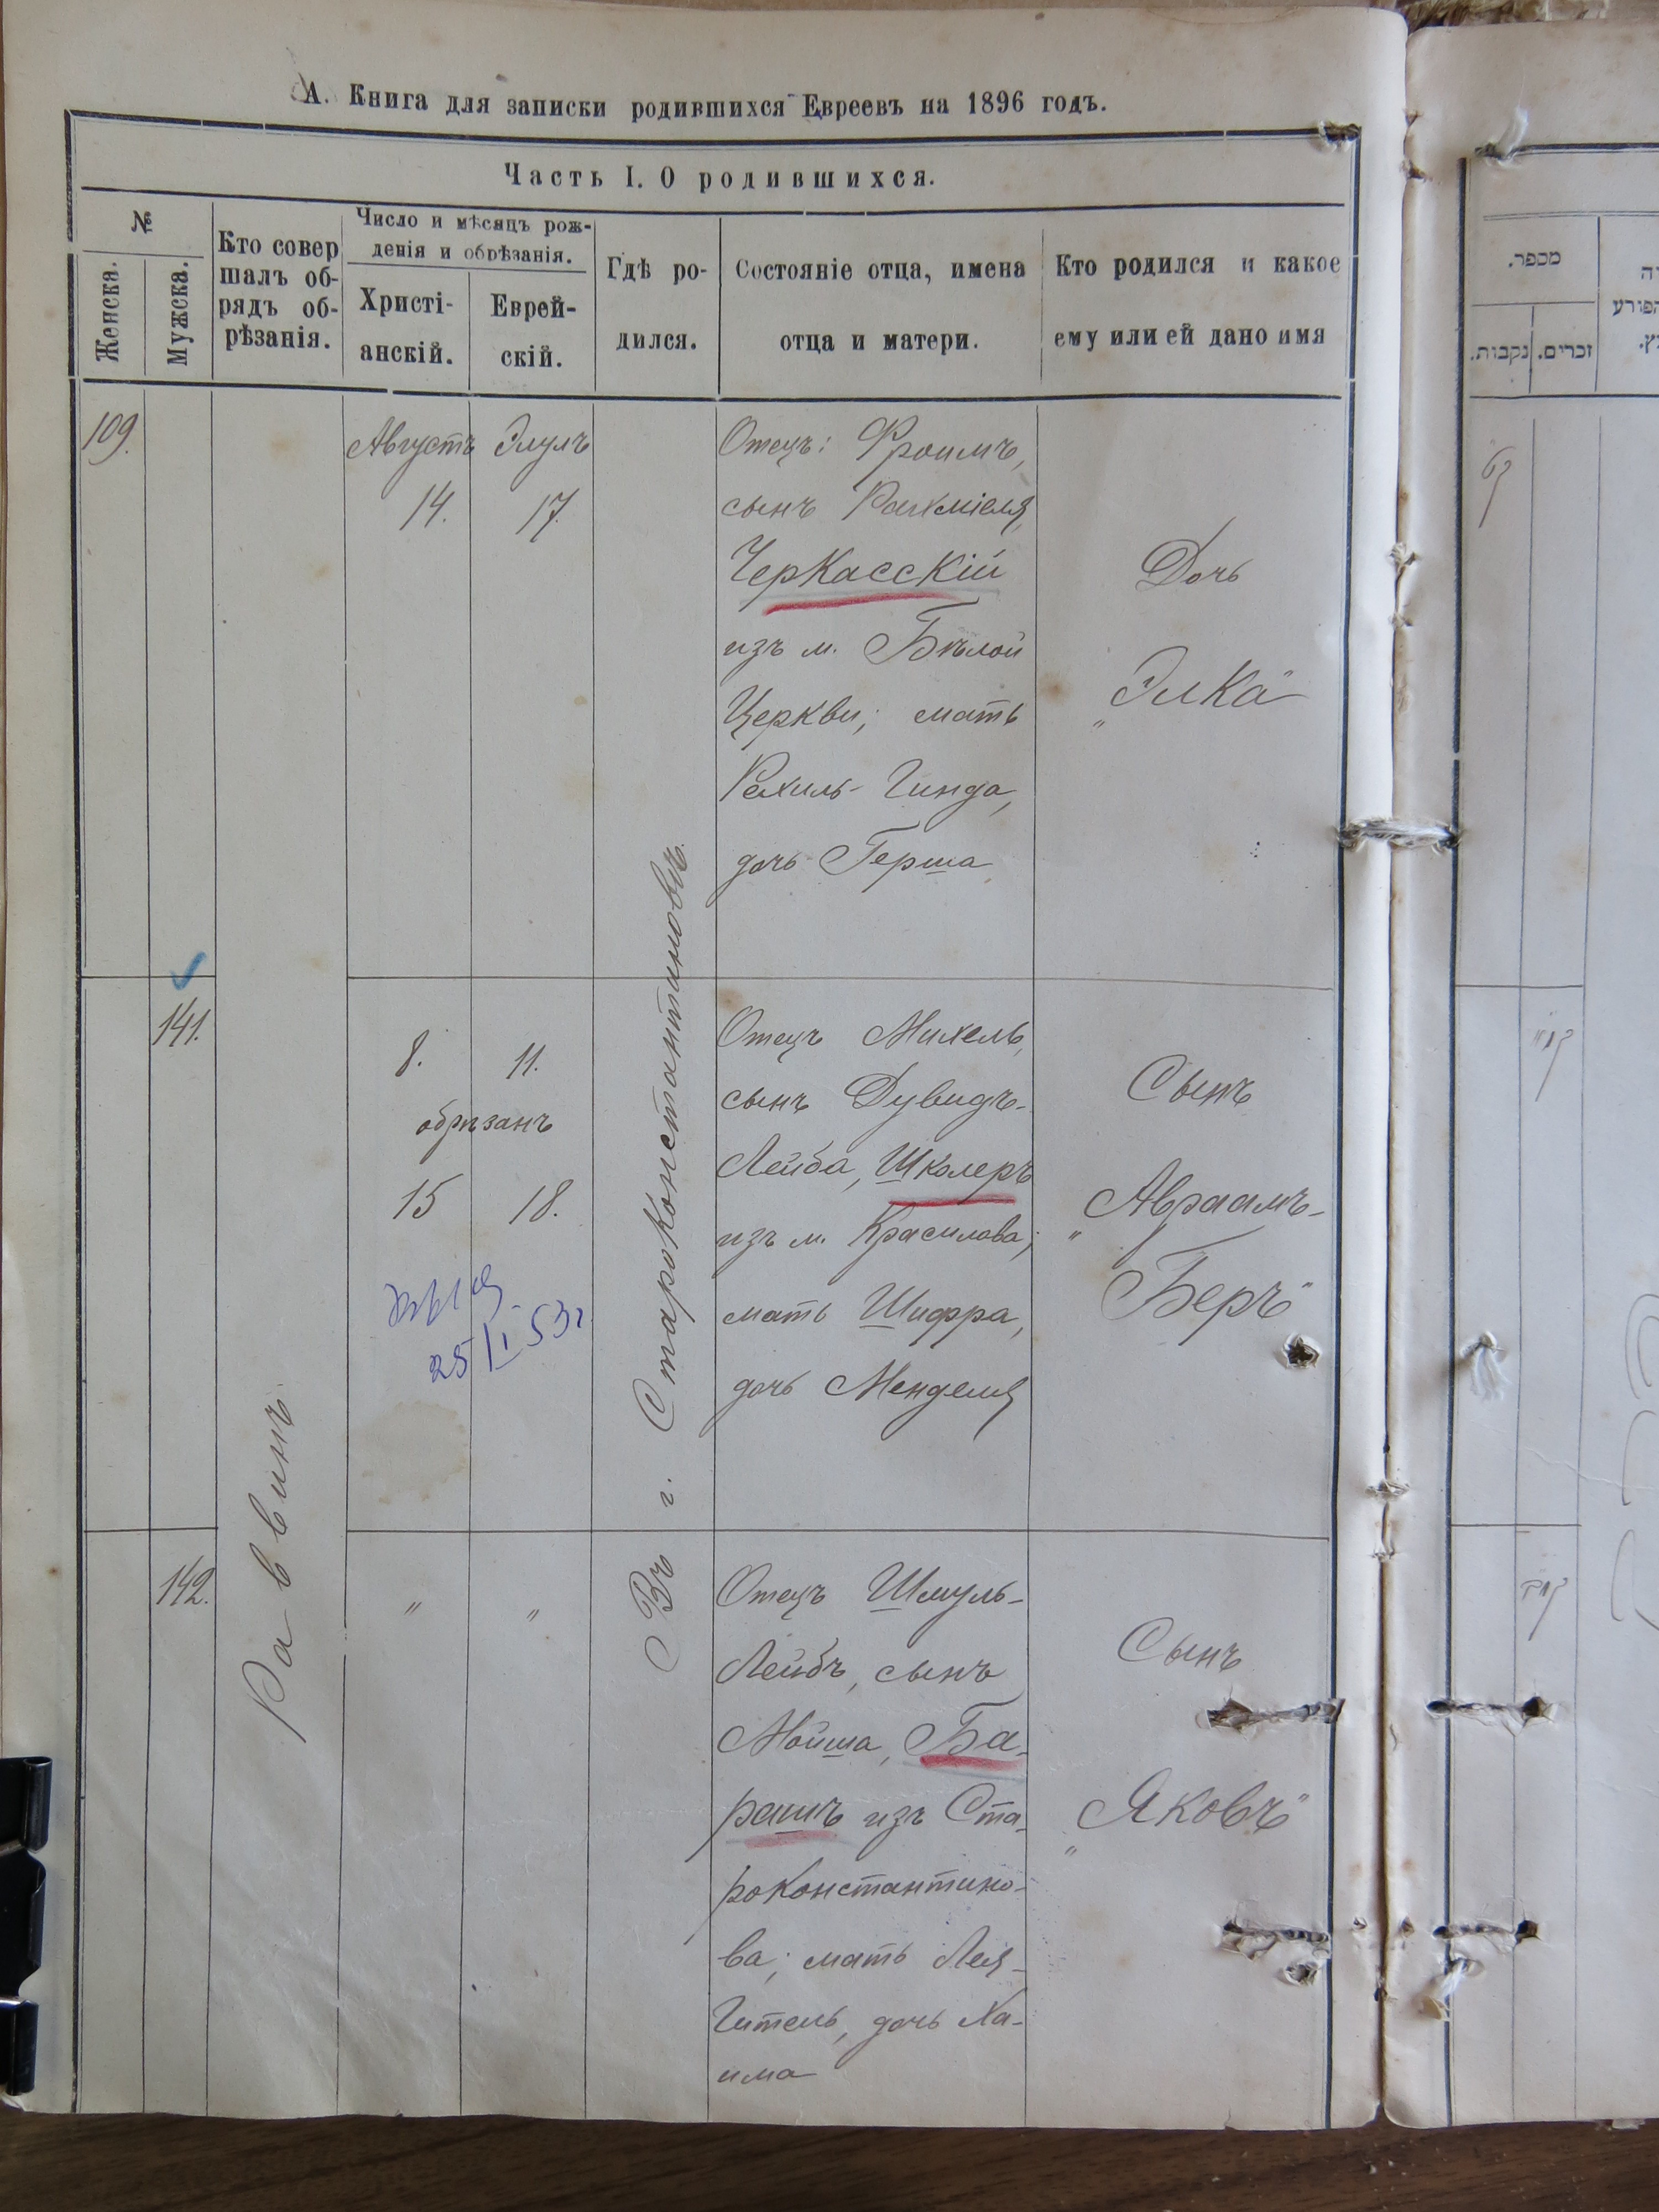 А. Книга для записки родившихся Евреевъ на 1896 годъ.
Часть I. О родившихся.
№
Женска.
Мужска.
Кто совер
шалъ об-
рядъ об-
рѣзанія.
Число и мѣсяцъ рож-
денія и обрѣзанія.
Христі-
анскій.
Еврей-
скій.
Гдѣ ро-
дился.
Состояніе отца, имена
отца и матери.
Кто родился и какое
ему или ей дано имя
109.
Августъ Элулъ
14. 17.
Отецъ: Фроимъ,
сынъ Рахміеля,
Черкасскій
изъ м. Бѣлой
Церкви; мать
Рехиль-Гинда,
дочь Герша
Дочь
„Элка"
141.
8. 11.
обрѣзанъ
15 18.
25/I 53г.
Отецъ Михель,
сынъ Дувидъ-
Лейба, Школеръ
изъ м. Красилова;
мать Шифра,
дочь Менделя
Сынъ
„Авраамъ-
Беръ"
142.
" "
Отецъ Шмуль-
Лейбъ, сынъ
Мойша, Ба-
рашъ изъ Ста-
роконстантино-
ва; мать Лея-
Гитель, дочь Ха-
има
Сынъ
„Яковъ"
Раввинъ
Въ г. Староконстантиновѣ.
מכפר.
זכרים.
נקבות.
קט
קמא
קמב